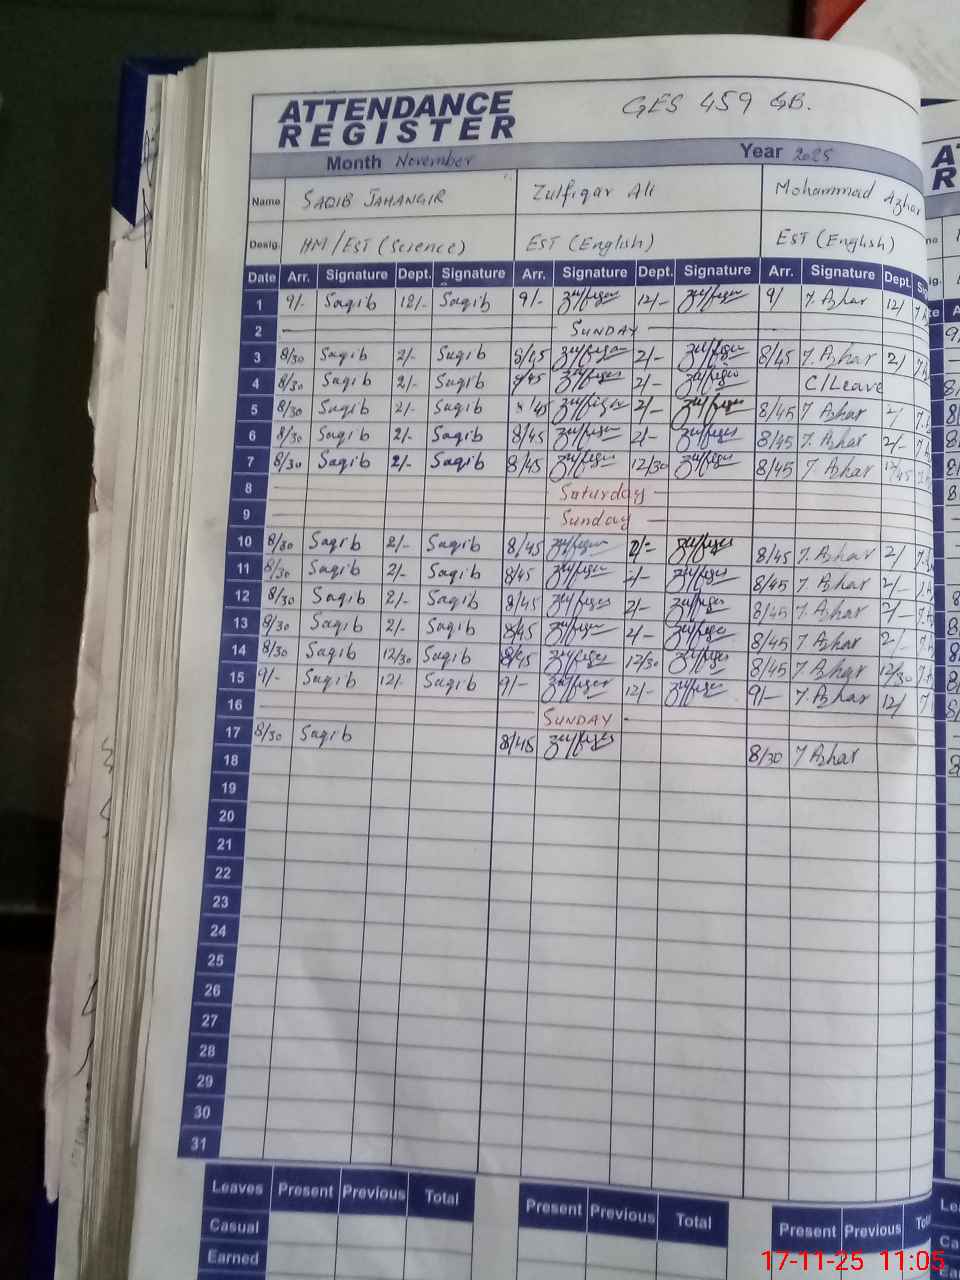 ATTENDANCE REGISTER GES 459 GB.
Month November Year 2025
Name SAQIB JAHANGIR Zulfiqar Ali Mohammad Azhar
Desig. HM/EST (Science) EST (English) EST (English)
Date Arr. Signature Dept. Signature Arr. Signature Dept. Signature Arr. Signature Dept.
1 9/- Saqib 12/- Saqib 9/- Zulfiqar 12/- Zulfiqar 9/ 7. Azhar 12/
2 SUNDAY
3 8/30 Saqib 2/- Saqib 8/45 Zulfiqar 2/- Zulfiqar 8/45 7. Azhar 2/
4 8/30 Saqib 2/- Saqib 8/45 Zulfiqar 2/- Zulfiqar C/Leave
5 8/30 Saqib 2/- Saqib 8/45 Zulfiqar 2/- Zulfiqar 8/45 7 Azhar 2/
6 8/30 Saqib 2/- Saqib 8/45 Zulfiqar 2/- Zulfiqar 8/45 7. Azhar 2/-
7 8/30 Saqib 2/- Saqib 8/45 Zulfiqar 12/30 Zulfiqar 8/45 7 Azhar 12/45
8 Saturday
9 Sunday
10 8/30 Saqib 2/- Saqib 8/45 Zulfiqar 2/- Zulfiqar 8/45 7. Azhar 2/
11 8/30 Saqib 2/- Saqib 8/45 Zulfiqar 2/- Zulfiqar 8/45 7. Azhar 2/-
12 8/30 Saqib 2/- Saqib 8/45 Zulfiqar 2/- Zulfiqar 8/45 7. Azhar 2/-
13 8/30 Saqib 2/- Saqib 8/45 Zulfiqar 2/- Zulfiqar 8/45 7. Azhar 2/-
14 8/30 Saqib 12/30 Saqib 8/45 Zulfiqar 12/30 Zulfiqar 8/45 7 Azhar 12/30
15 9/- Saqib 12/- Saqib 9/- Zulfiqar 12/- Zulfiqar 9/- 7. Azhar 12/
16 SUNDAY
17 8/30 Saqib 8/45 Zulfiqar 8/30 7 Azhar
18
19
20
21
22
23
24
25
26
27
28
29
30
31
Leaves Present Previous Total Present Previous Total Present Previous
Casual
Earned
17-11-25 11:05